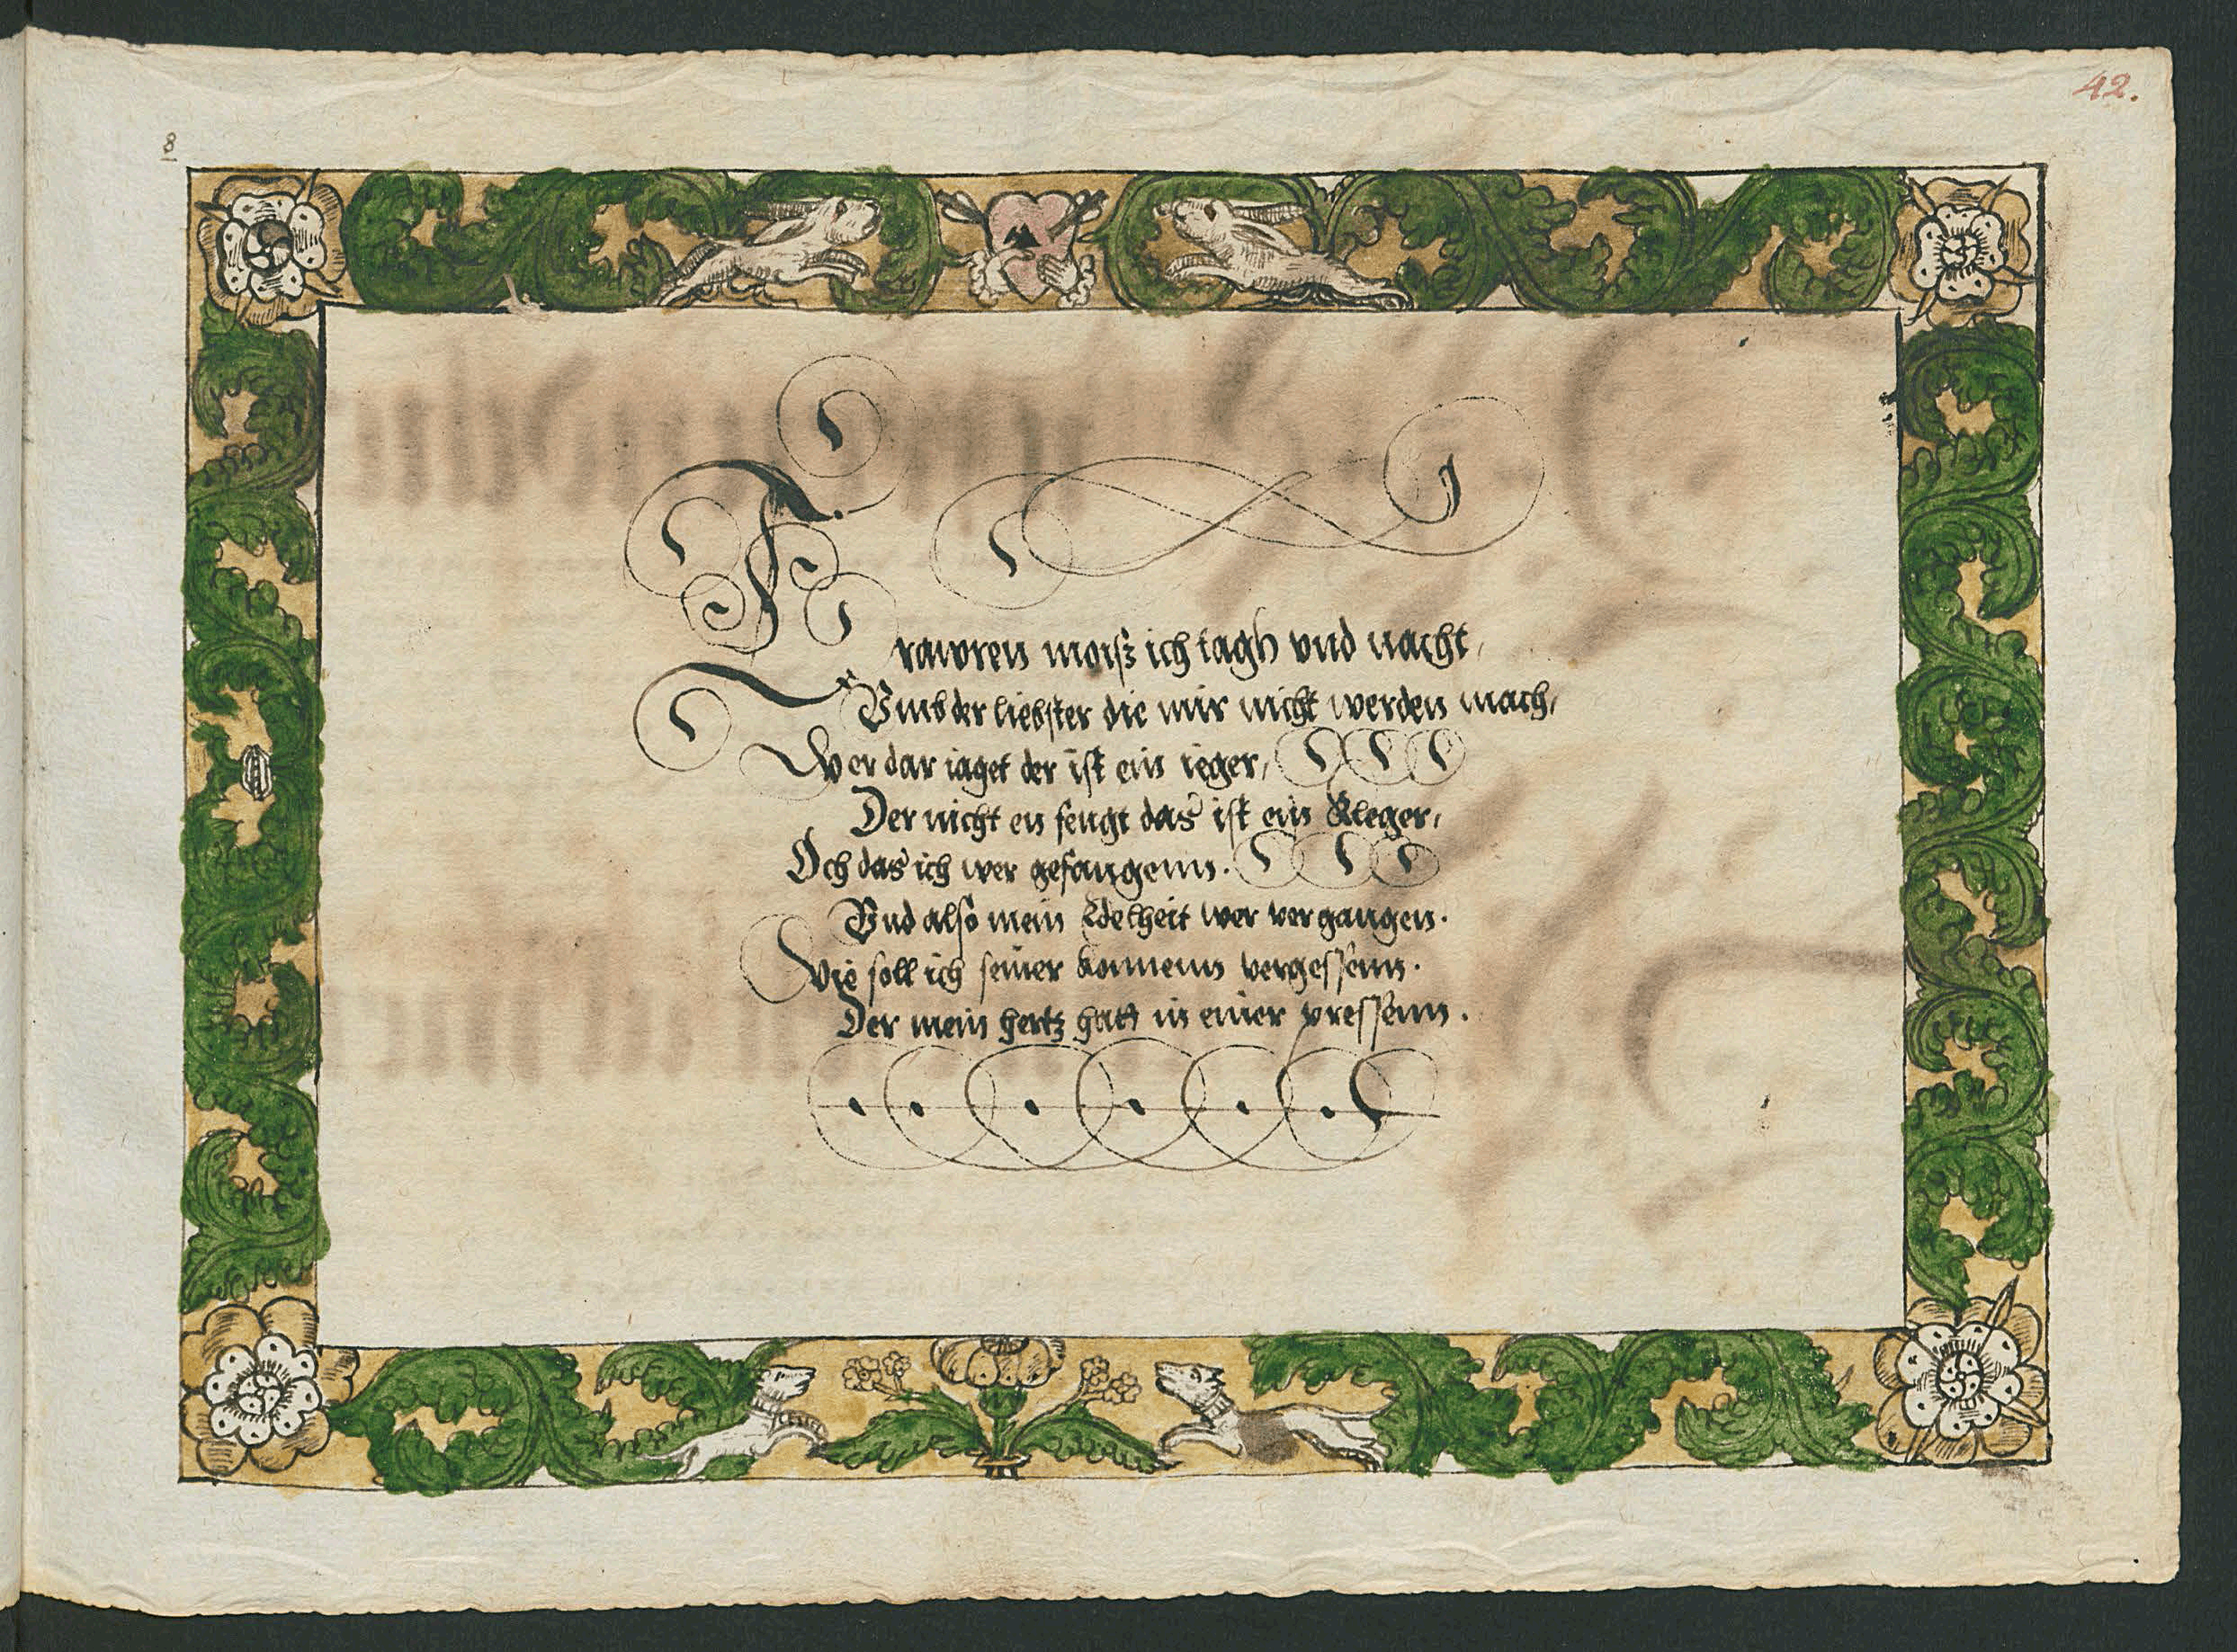 42.
8
Trawren moisz ich tagh vnd nacht,
Vmb der liebster die mir nicht werden mach,
Wer dar iaget der ist ein ieger,
Der nicht en fengt das ist ein Kleger,
Och das ich wer gefangenn.
Vnd also mein Edelheit wer vergangen.
Wie soll ich seiner konnenn vergessenn.
Der mein hertz hatt in einer pressenn.